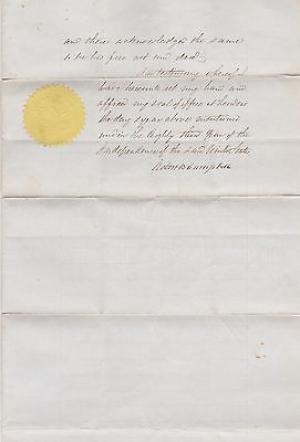 and there acknowledge the same
to be his free act and deed.
In testimony whereof I
have hereunto set my hand and
affixed my seal of office at London
the day & year above mentioned
and in the Eighty third Year of the
Independence of the said United States
Robt B Campbell